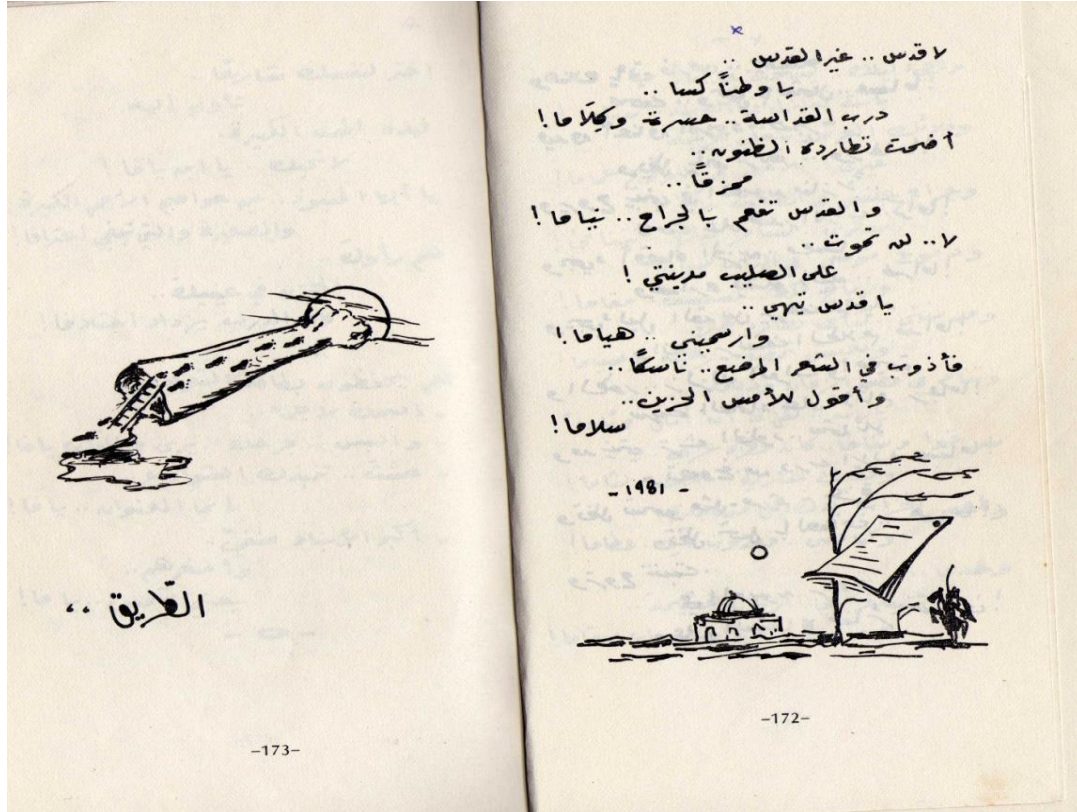 لا قدس .. غير القدس ..
يا وطناً كسا ..
درب القداسة .. حسرةً وكِلاما !
أضحت تطارده الظنون ..
ممزقاً ..
والقدس تفحم بالجراح .. نياما !
لا .. لن تموت ..
على الصليب مدينتي !
يا قدس تيهي
وارسميني .. هياما !
فأذوب في الشعر المرضع .. ناسكاً ..
وأقول للأمس الحزين ..
سلاما !
- 1981 -
-172-
الطّريق ..
-173-